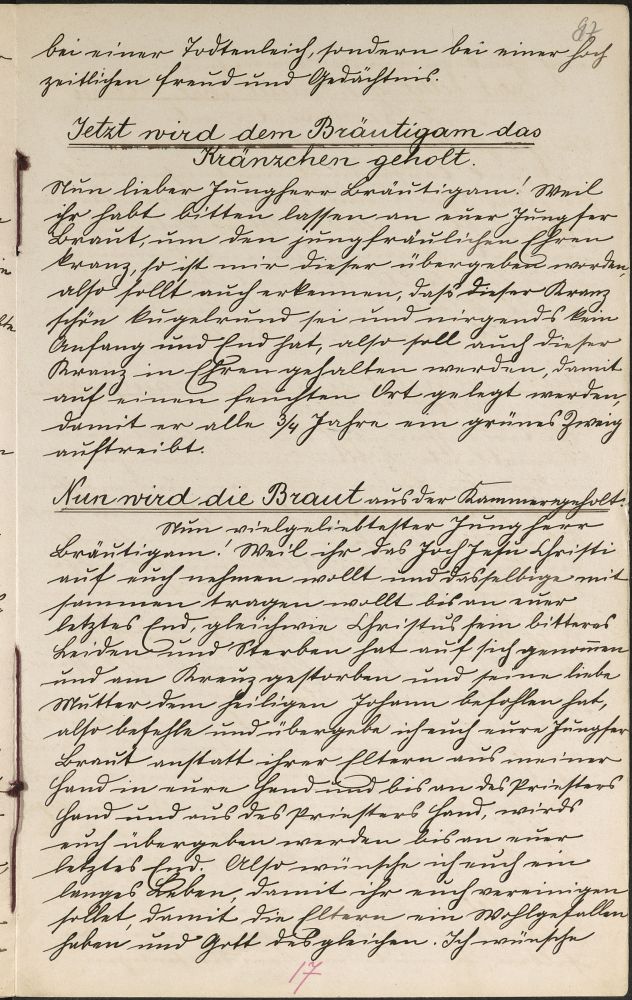 97
bei einer Todtenleich, sondern bei einer hoch
zeitlichen freud und Gedächtnis.
Jetzt wird dem Bräutigam das
Kränzchen geholt.
Nun lieber Jungherr Bräutigam! Weil
ihr habt bitten lassen an euer Jungfer
Braut, um den jungfräulichen Ehren
kranz, so ist mir dieser übergeben worden,
also sollt auch erkennen, daß dieser Kranz
schön kugelrund sei und nirgends kein
Anfang und End hat, also soll auch dieser
Kranz in Ehren gehalten werden, damit
auf einen feuchten Ort gelegt werden,
damit er alle 3/4 Jahre ein grünes Zweig
auftreibt.
Nun wird die Braut aus der Kammer geholt.
Nun vielgeliebtester Jungherr
Bräutigam! Weil ihr das Joch Jesu Christi
auf euch nehmen wollt und dasselbige mit
sammen tragen wollt bis an euer
letztes End, gleichwie Christus sein bitteres
Leiden und Sterben hat auf sich genommen
und am Kreuz gestorben und seine liebe
Mutter dem heiligen Johann befohlen hat,
also befehle und übergebe ich euch eure Jungfer
Braut anstatt ihrer Eltern aus meiner
Hand in eure Hand und bis an des Priesters
Hand und aus des Priesters Hand, wirds
euch übergeben werden bis an euer
letztes End. Also wünsche ich euch ein
langes Leben, damit ihr euch vereinigen
sollet, damit die Eltern ein Wohlgefallen
haben und Gott desgleichen. Ich wünsche
17